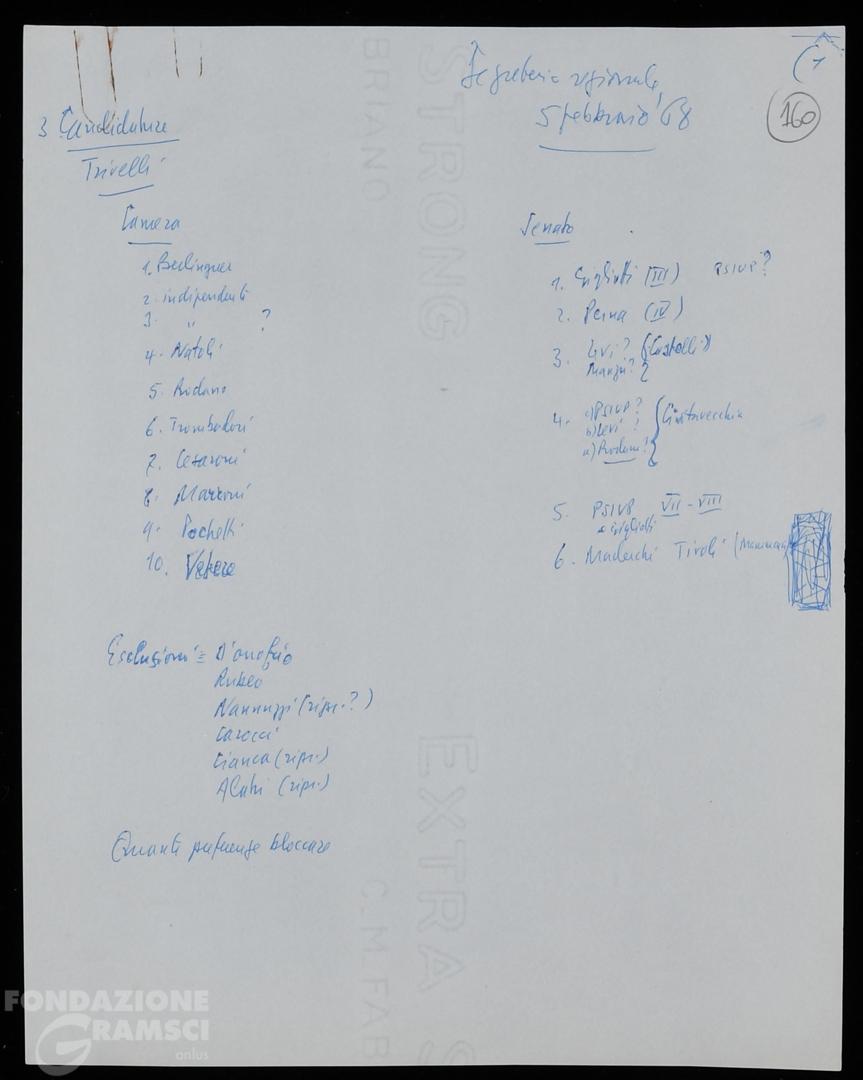 Segreteria regionale
5 febbraio '68
160
3 Candidature
Trivelli
Camera
1. Berlinguer
2. indipendenti
3. " ?
4. Natoli
5. Rodano
6. Trombadori
7. Cesaroni
8. Marroni
9. Pochetti
10. Vetere
Esclusioni = D'onofrio
Rubeo
Nannuzzi (ripr.?)
Carocci
Cianca (ripr.)
Alatri (ripr.)
Quante preferenze bloccare
Senato
1. Gigliotti (III) PSIUP?
2. Perna (IV)
3. Levi? (Castelli)
Manzù?
4. c) PSIUP?
b) Levi?
a) Rodano?
Civitavecchia
5. PSIUP VII - VIII
o Gigliotti
6. Maderchi Tivoli (Mammucari)
STRONG
BRIANO
EXTRA S
C.M.FAB
FONDAZIONE
GRAMSCI
onlus